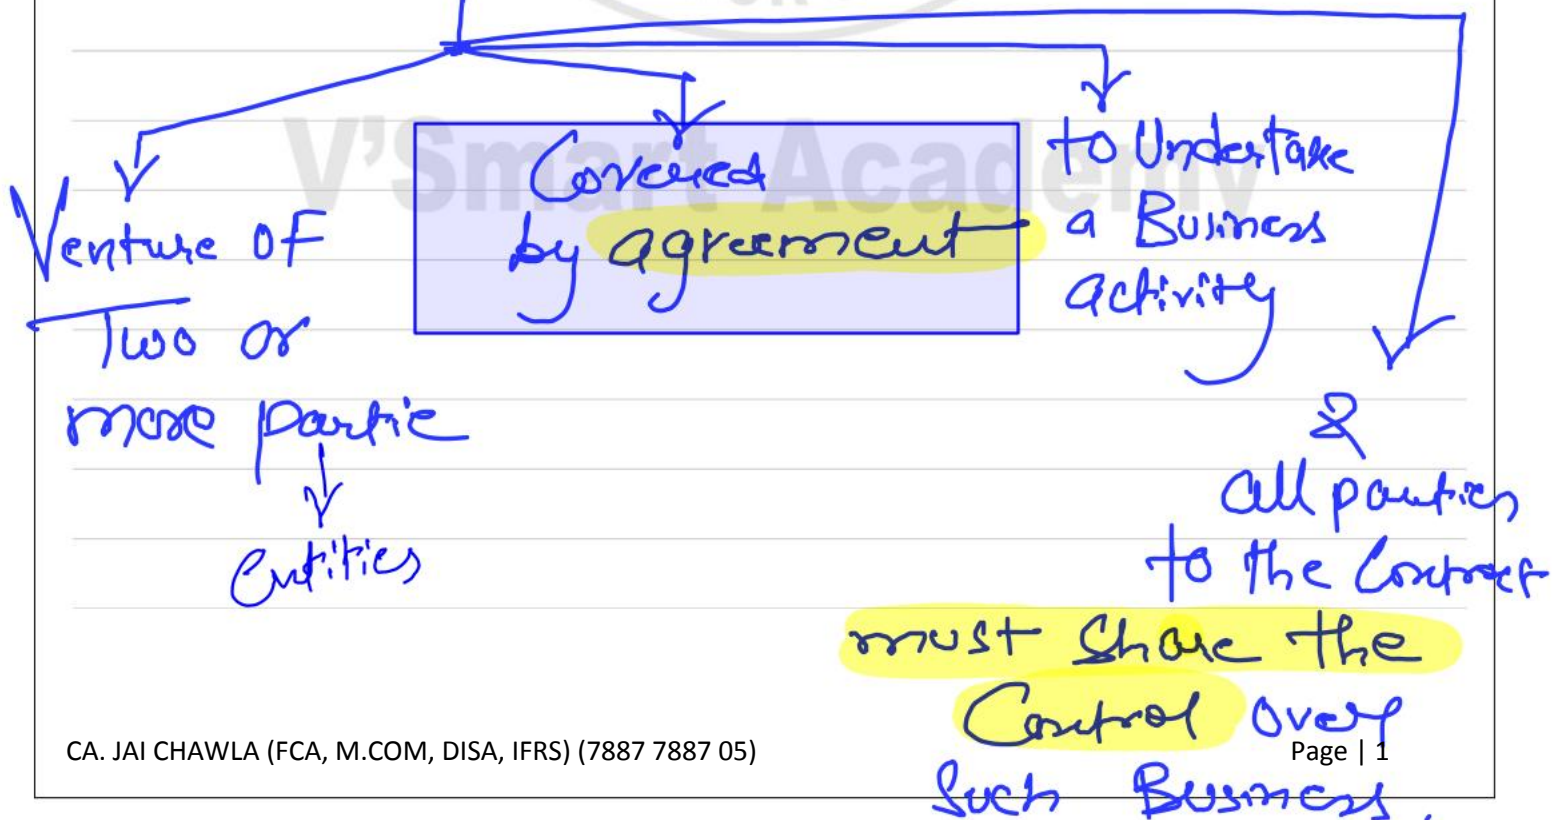 OR
V'Smart Academy
Venture of
Two or
more partie
entities
Covered
by agreement
to Undertake
a Business
activity
&
all parties
to the Contract
must Share the
Control over
Such Business
CA. JAI CHAWLA (FCA, M.COM, DISA, IFRS) (7887 7887 05)
Page | 1